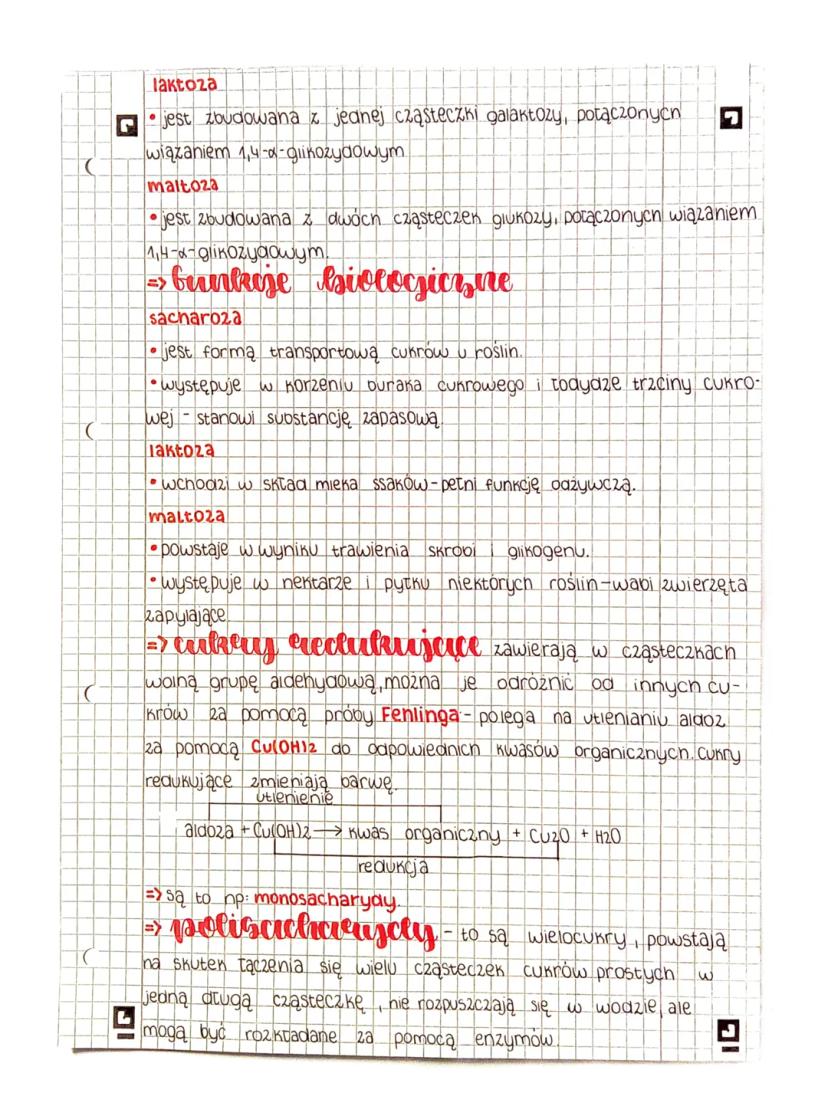 laktoza
• jest zbudowana z jednej cząsteczki galaktozy, połączonych
wiązaniem 1,4-α-glikozydowym
maltoza
• jest zbudowana z dwóch cząsteczek glukozy, połączonych wiązaniem
1,4-α-glikozydowym.
=> funkcje biologiczne
sacharoza
• jest formą transportową cukrów u roślin.
• występuje w korzeniu buraka cukrowego i łodydze trzciny cukro-
wej - stanowi substancję zapasową
laktoza
• wchodzi w skład mleka ssaków - pełni funkcję odżywczą.
maltoza
• powstaje w wyniku trawienia skrobi i glikogenu.
• występuje w nektarze i pyłku niektórych roślin - wabi zwierzęta
zapylające.
=> cukry redukujące zawierają w cząsteczkach
wolną grupę aldehydową, można je odróżnić od innych cu-
krów za pomocą próby Fehlinga - polega na utlenianiu aldoz
za pomocą Cu(OH)2 do odpowiednich kwasów organicznych. Cukry
redukujące zmieniają barwę.
utlenienie
aldoza + Cu(OH)2 → kwas organiczny + Cu2O + H2O
redukcja
=> są to np: monosacharydy.
=> polisacharydy - to są wielocukry, powstają
na skutek łączenia się wielu cząsteczek cukrów prostych w
jedną długą cząsteczkę, nie rozpuszczają się w wodzie, ale
mogą być rozkładane za pomocą enzymów.